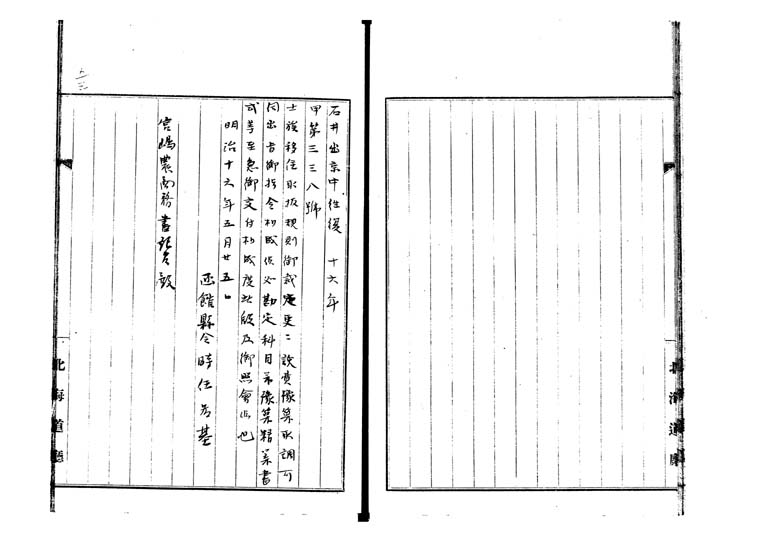 石井出京中往復 十六年
甲第三三八號
士族移住取扱規則御裁定更ニ該費豫算取調可
伺出旨御指令相成候処勘定科目并豫算精算書
式等至急御交付相成度此段及御照會候也
明治十六年五月廿五日
函館縣令時任為基
宮嶋農商務書記官殿
北海道廳
北海道廳